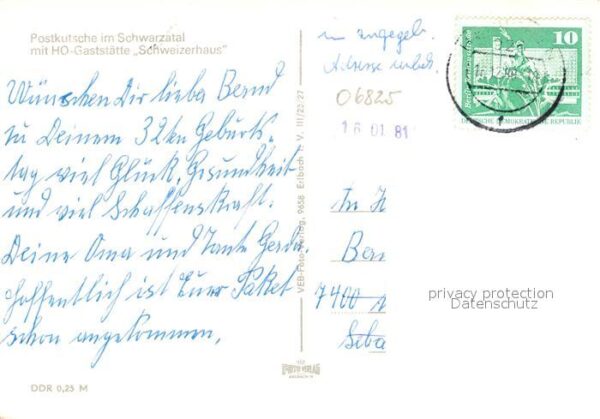 Postkutsche im Schwarzatal
mit HO-Gaststätte „Schweizerhaus"
Wünschen Dir lieber Bernd
zu Deinem 32ten Geburts-
tag viel Glück, Gesundheit
und viel Schaffenskraft.
Deine Oma und Tante Gerda.
Hoffentlich ist Euer Paket
schon angekommen.
DDR 0,25 M
VEB Foto-Verlag, 9658 Erlbach V. III/23/27
FOTO VERLAG
in angegeb.
Adresse unbek.
06825
16 01 81
10
DEUTSCHE DEMOKRATISCHE REPUBLIK
Ber
7400
privacy protection
Datenschutz